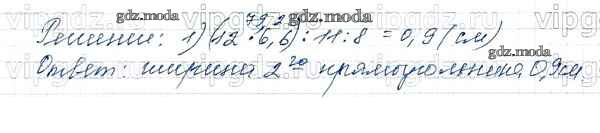 gdz.moda gdz.moda gdz.moda
79,2
Решение: 1) (12 · 6,6) : 11 : 8 = 0,9 (см)
Ответ: ширина 2го прямоугольника 0,9см
gdz.moda gdz.moda